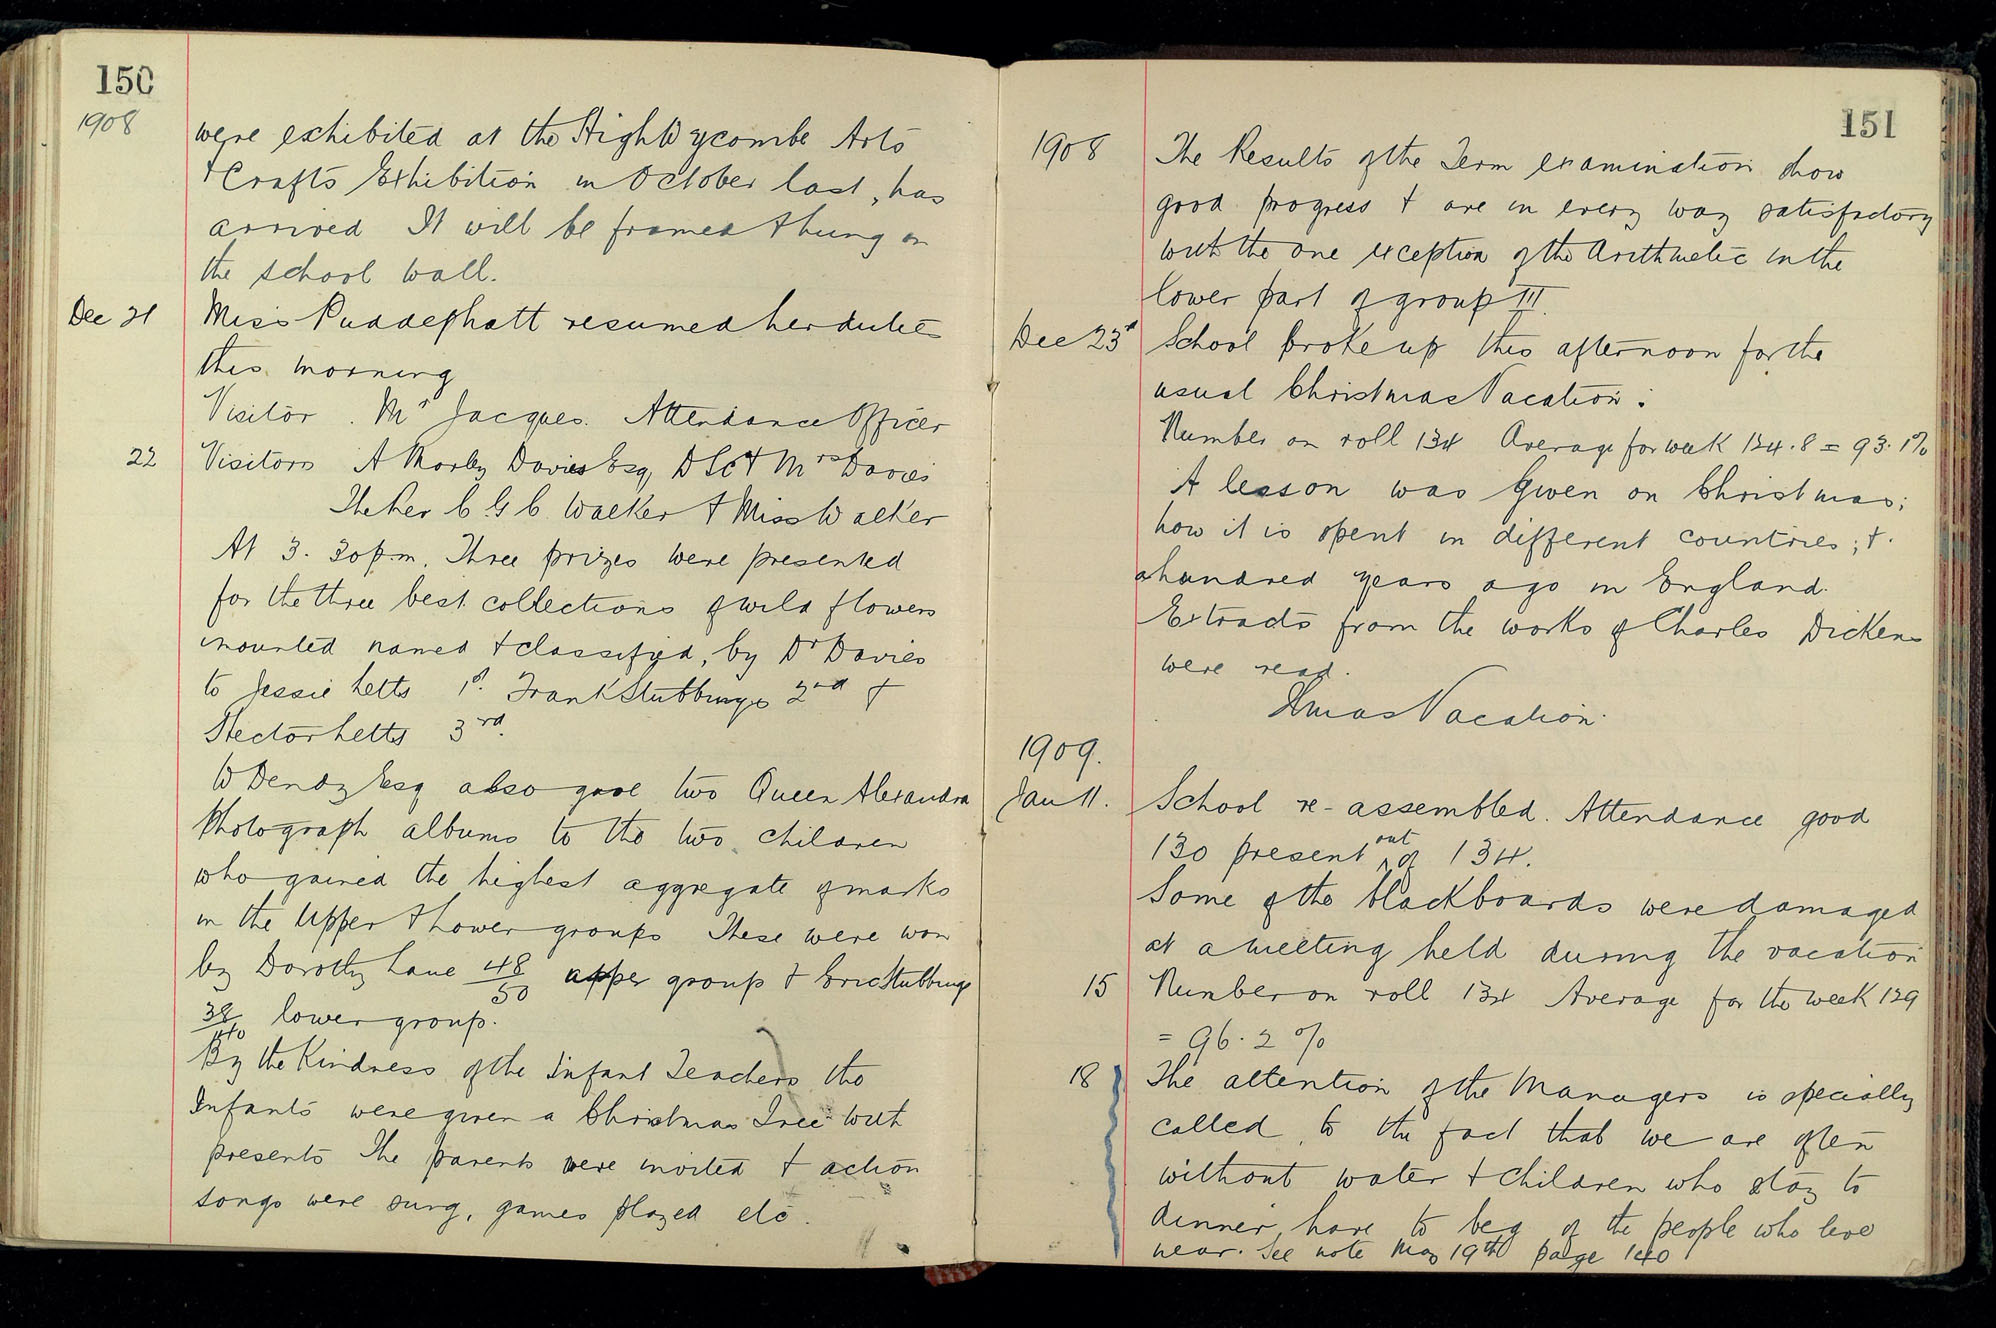 150
1908
were exhibited at the High Wycombe Arts
& Crafts Exhibition in October last, has
arrived It will be framed & hung on
the school wall.
Dec 21 Miss Puddephatt resumed her duties
this morning
Visitor. Mr Jacques. Attendance Officer
22 Visitors A Morley Davies Esq, D Sc & Mrs Davies
The Rev C. G C. Walker & Miss Walker
At 3. 30 p.m. Three prizes were presented
for the three best collections of wild flowers
mounted named & classified, by Dr Davies
to Jessie Letts 1st. Frank Stubbings 2nd &
Hector Letts 3rd.
W Dendy Esq also gave two Queen Alexandra
Photograph albums to the two children
who gained the highest aggregate of marks
in the Upper & Lower groups These were won
by Dorothy Lane 48/50 upper group & Eric Stubbings
38/40 lower group.
By the Kindness of the Infant Teachers the
Infants were given a Christmas Tree with
presents The parents were invited & action
songs were sung, games played etc.
151
1908 The Results of the Term examination show
good progress & are in every way satisfactory
with the one exception of the Arithmetic in the
lower part of group III.
Dec 23rd School broke up this afternoon for the
usual Christmas Vacation.
Number on roll 134 Average for week 124.8 = 93.1%
A lesson was given on Christmas;
how it is spent in different countries; &
a hundred years ago in England.
Extracts from the works of Charles Dickens
were read.
Xmas Vacation.
1909.
Jan 11. School re-assembled. Attendance good
130 present out of 134.
Some of the blackboards were damaged
at a meeting held during the vacation
15 Number on roll 134 Average for the week 129
= 96.2 %
18 The attention of the Managers is specially
called to the fact that we are often
without water & children who stay to
dinner, have to beg of the people who live
near. See note May 19th page 140